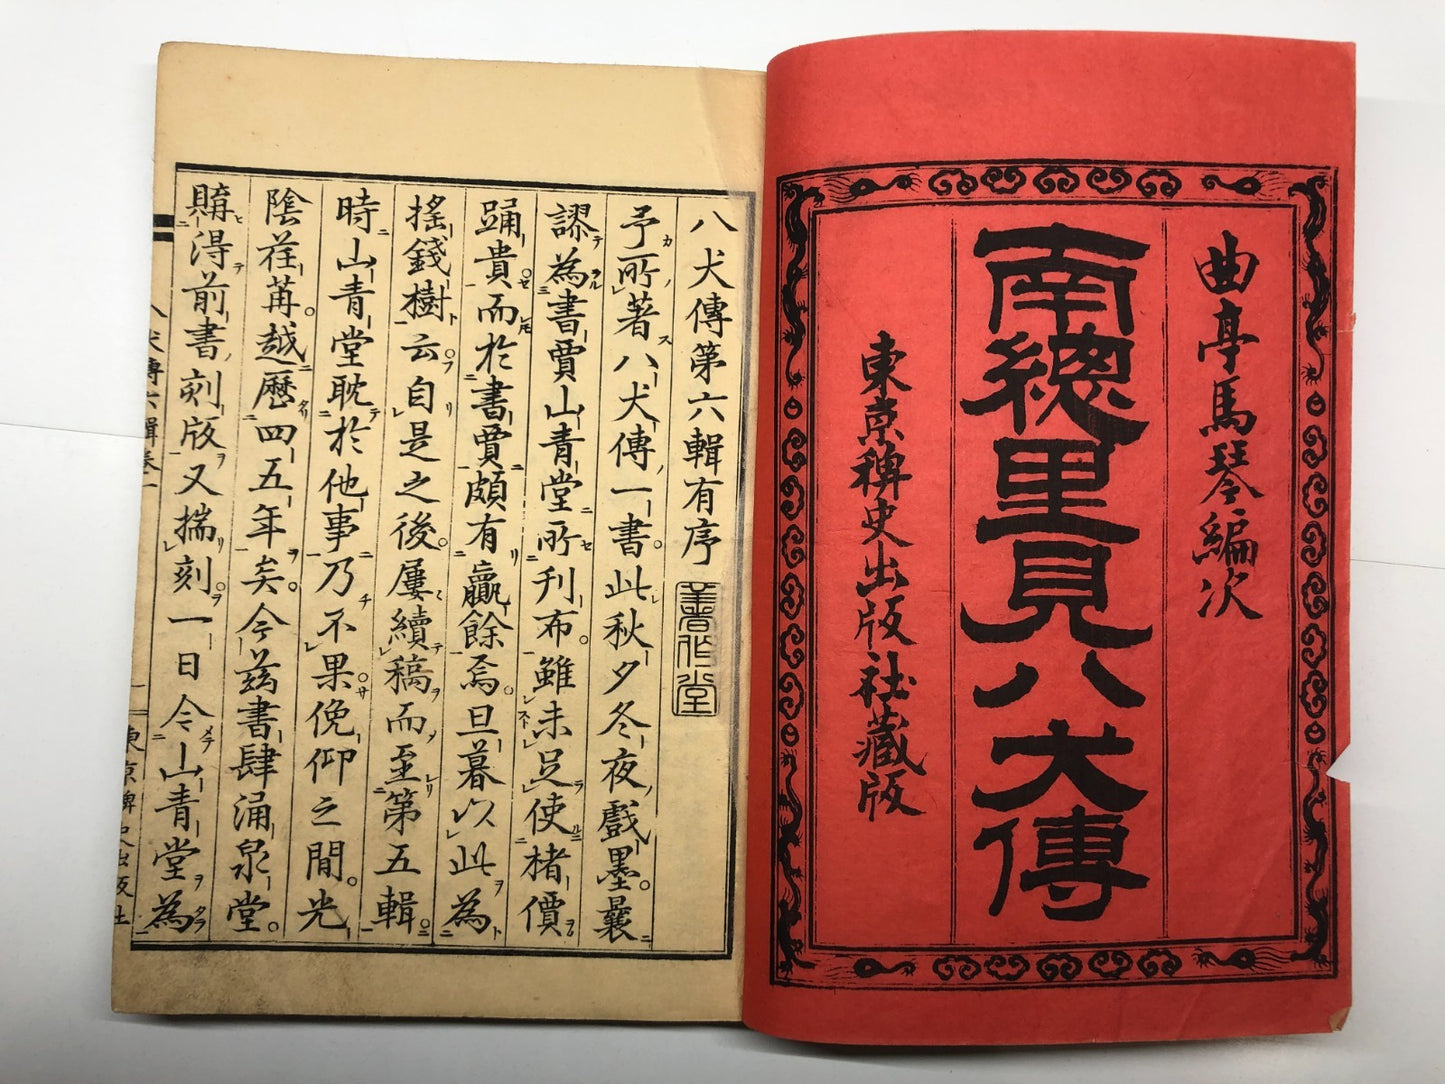 曲亭馬琴編次
南總里見八犬傳
東京稗史出版社藏版
八犬傳第六輯有序
予所著八犬傳一書此秋夕冬夜戲墨曩
謬為書賈山青堂所刊布雖未足使楮價
踊貴而於書賈頗有贏餘焉旦暮以此為
搖錢樹云自是之後屢續稿而至第五輯
時山青堂耽於他事乃不果俛仰之間光
陰荏苒越歷四五年矣今茲書肆涌泉堂
購得前書刻版又揣刻一日令山青堂為
八犬傳六輯卷一
東京稗史出版社